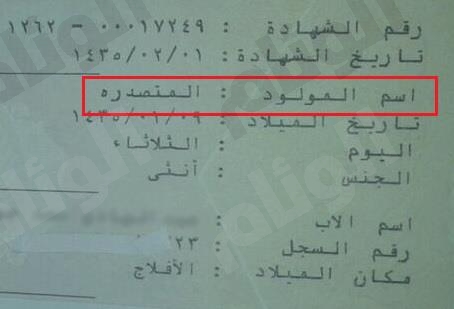 رقم الشهادة : ٠٠٠١٧٢٤٩ - ١٢٦٢
تاريخ الشهادة : ١٤٣٥/٠٢/٠١
اسم المولود : المتصدره
تاريخ الميلاد : ١٤٣٥/٠١/٠٩
اليوم : الثلاثاء
الجنس : أنثى
اسم الاب :
رقم السجل : ٢٣
مكان الميلاد : الأفلاج